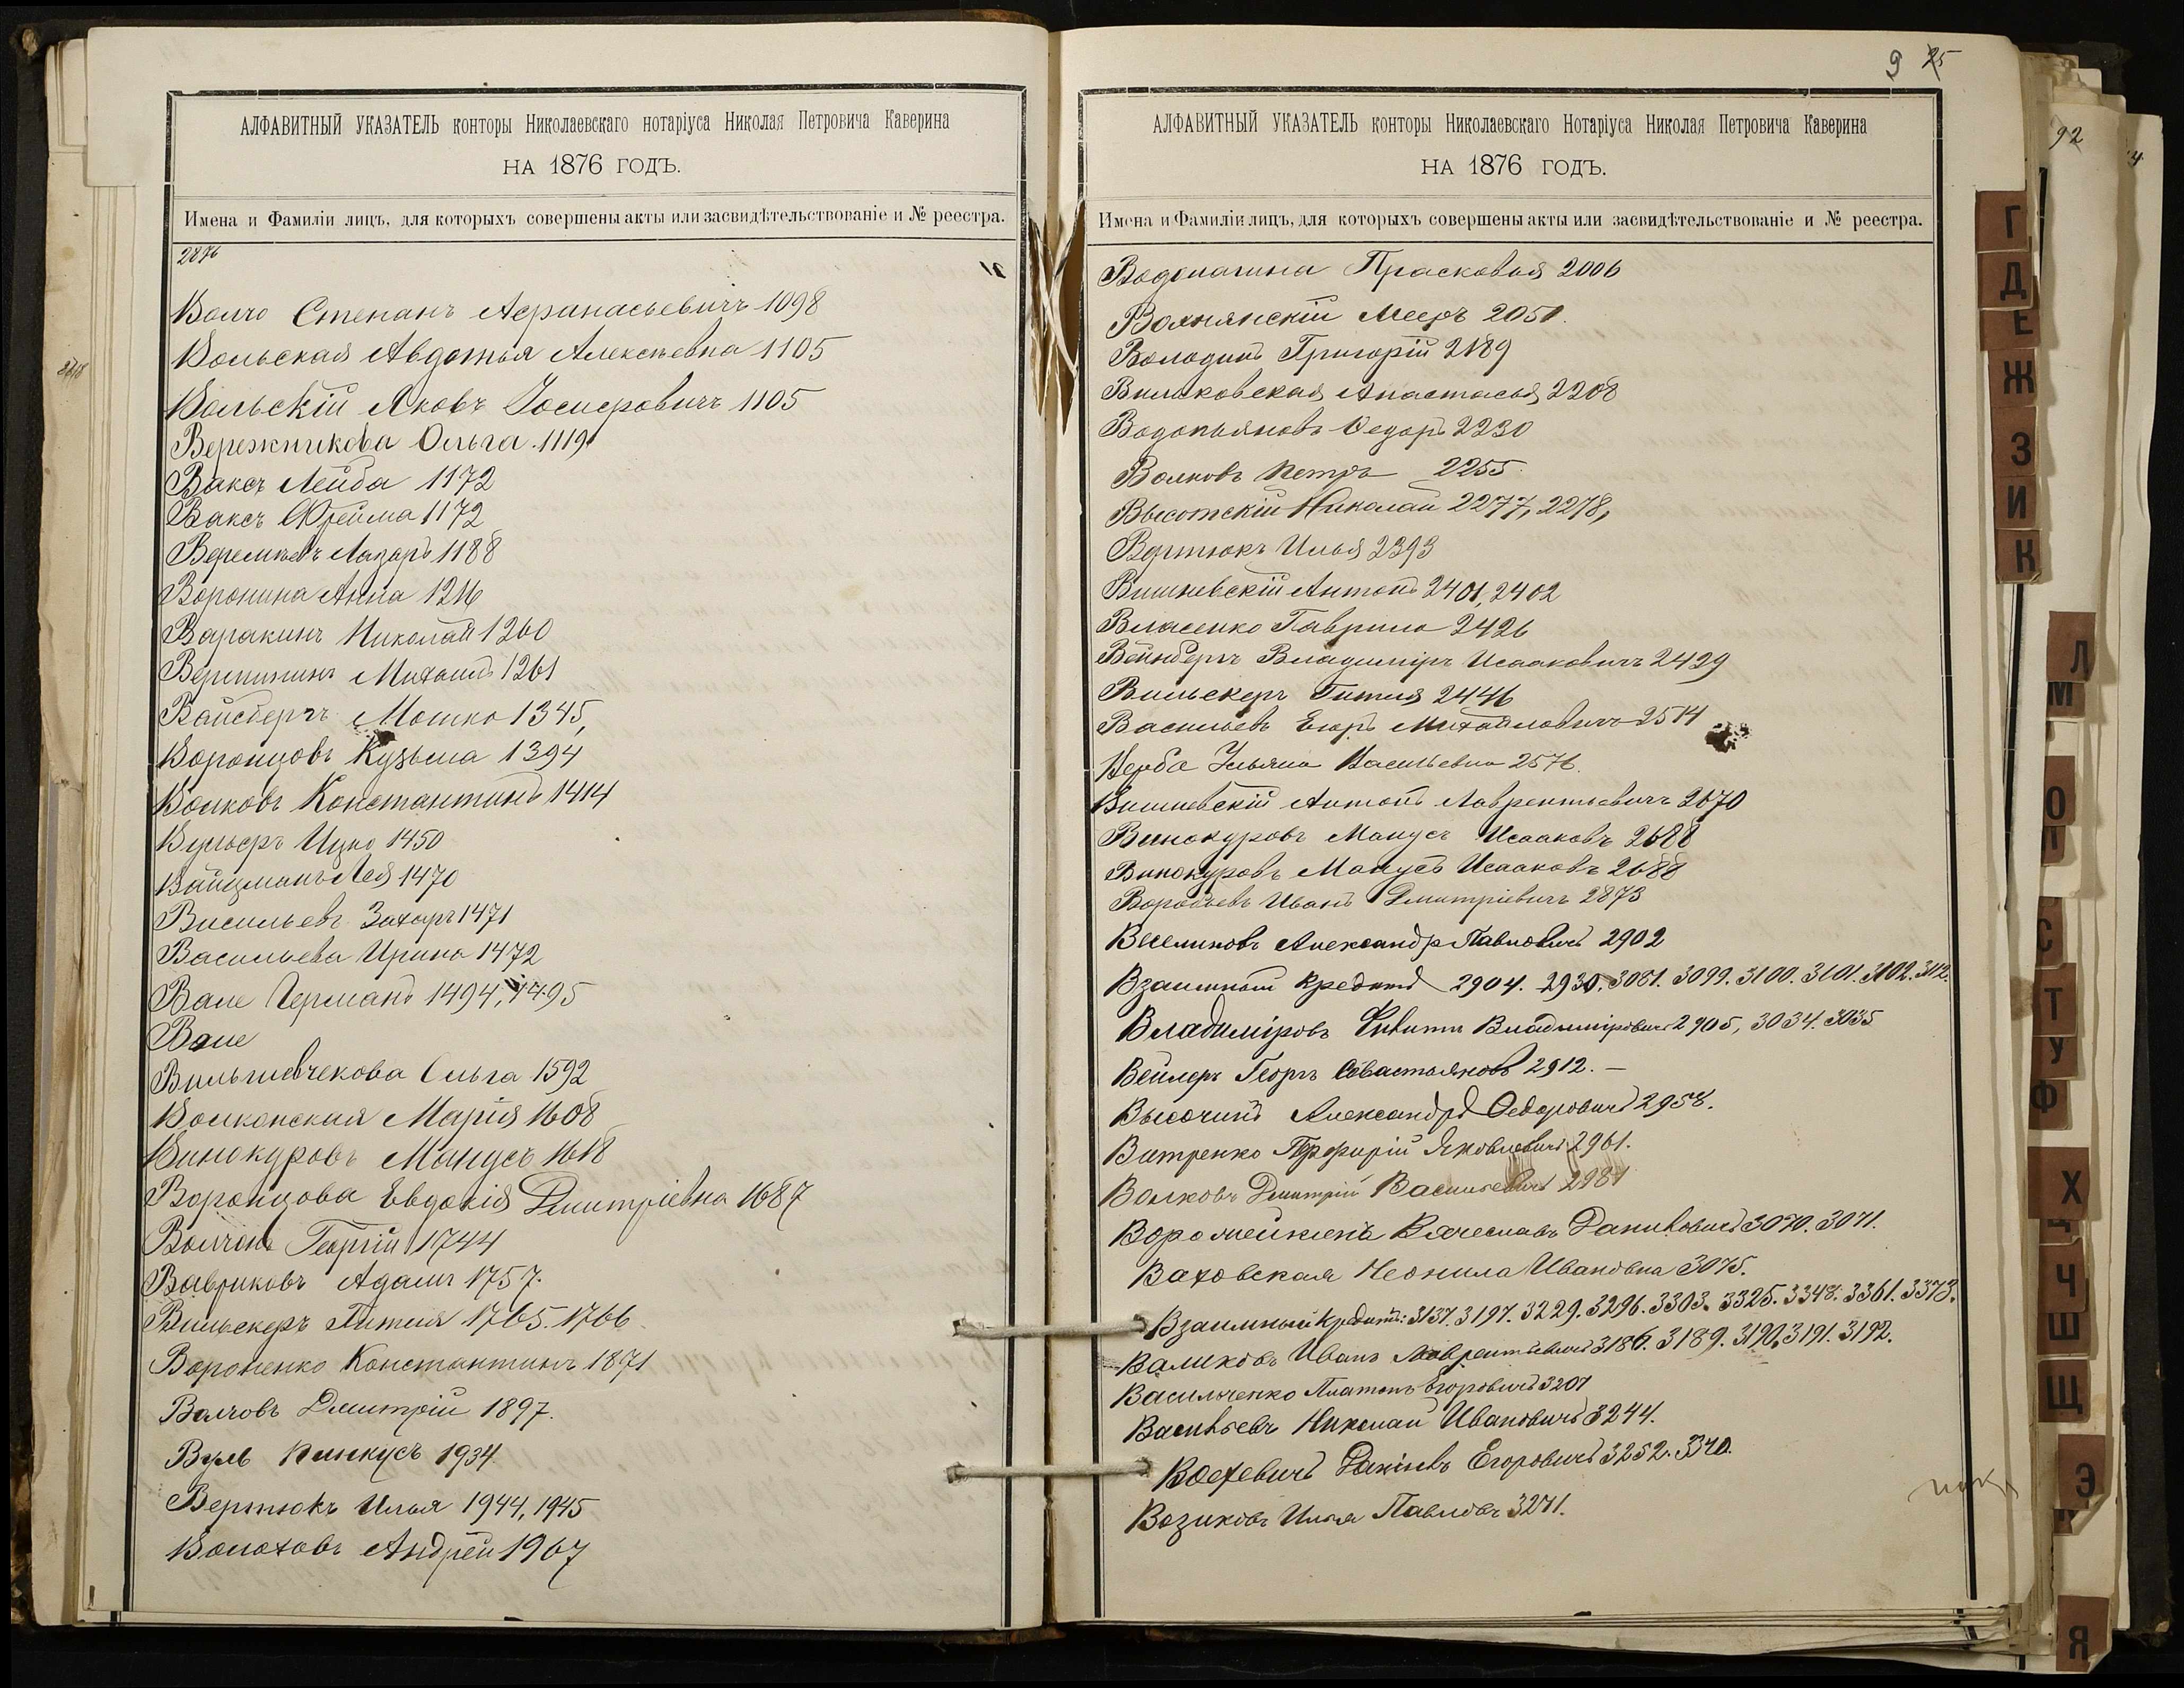 АЛФАВИТНЫЙ УКАЗАТЕЛЬ конторы Николаевскаго нотаріуса Николая Петровича Каверина
НА 1876 ГОДЪ.
Имена и Фамиліи лицъ, для которыхъ совершены акты или засвидѣтельствованіе и № реестра.
2876
Степанъ Афанасьевичъ 1098
Вольская Авдотья Алексѣевна 1105
Вольскій Яковъ Іосифовичъ 1105
Вережникова Ольга 1119
Ваксъ Лейба 1172
Ваксъ Фрейма 1172
Веремѣевъ Лазарь 1188
Воронина Анна 1216
Варакинъ Николай 1260
Вершининъ Михаилъ 1261
Вайсбергъ Мошко 1345,
Воронцовъ Кузьма 1394
Волковъ Константинъ 1414
Ицко 1450
Вайцманъ Лея 1470
Васильевъ Захаръ 1471
Васильева Ирина 1472
Вале Германъ 1494, 1495
Вале
Ольга 1592
Волконская Марія 1608
Винокуровъ Манусъ 1618
Воронцова Евдокія Дмитріевна 1687
Георгій 1744
Вавриковъ Адамъ 1757.
Вильскеръ Гитля 1765. 1766
Вороненко Константинъ 1871
Волговъ Дмитрій 1897.
Вуль Пинкусъ 1934
Вертюкъ Илья 1944, 1945
Волоховъ Андрей 1967
9 25
АЛФАВИТНЫЙ УКАЗАТЕЛЬ конторы Николаевскаго Нотаріуса Николая Петровича Каверина
НА 1876 ГОДЪ.
Имена и Фамиліи лицъ, для которыхъ совершены акты или засвидѣтельствованіе и № реестра.
Прасковья 2006
Волнянскій Мееръ 2051.
Володинъ Григорій 2189
Вильковская Анастасья 2208
Водопьяновъ Федоръ 2230
Волковъ Петръ 2255
Высотскій Николай 2277, 2278,
Вертюкъ Илья 2393
Вишневскій Антонъ 2401, 2402
Власенко Гаврило 2426
Вейнбергъ Владиміръ Исааковичъ 2429
Вильскеръ Гитля 2446
Васильевъ Егоръ Михайловичъ 2514
Верба Ульяна Васильевна 2576.
Вишневскій Антонъ Лаврентьевичъ 2670
Винокуровъ Манусъ Исааковъ 2688
Винокуровъ Манусъ Исааковъ 2688
Воробьевъ Иванъ Дмитріевичъ 2873
Веселиковъ Александръ Павловичъ 2902
Взаимный Кредитъ 2904. 2930. 3081. 3099. 3100. 3101. 3102. 3112.
Владиміровъ Владиміровичъ 2905, 3034. 3035
Вейлеръ Георгъ Севастьяновъ 2912. —
Высочинъ Александръ Федоровичъ 2958.
Витренко Порфирій Яковлевичъ 2961.
Волковъ Дмитрій Васильевичъ 2981
Вячеславъ Даниловичъ 3070. 3071.
Ваховская Неонила Ивановна 3075.
Взаимный Кредитъ: 3137. 3197. 3229. 3296. 3303. 3325. 3348. 3361. 3373.
Валиковъ Иванъ Лаврентьевичъ 3186. 3189. 3190. 3191. 3192.
Васильченко Платонъ Егоровичъ 3201
Васильевъ Николай Ивановичъ 3244.
Егоровичъ 3252. 3340.
Возиковъ Илья Павловъ 3271.
92
Г
Д
Е
Ж
З
И
К
Л
М
О
П
С
Т
У
Ф
Х
Ц
Ч
Ш
Щ
Э
Я